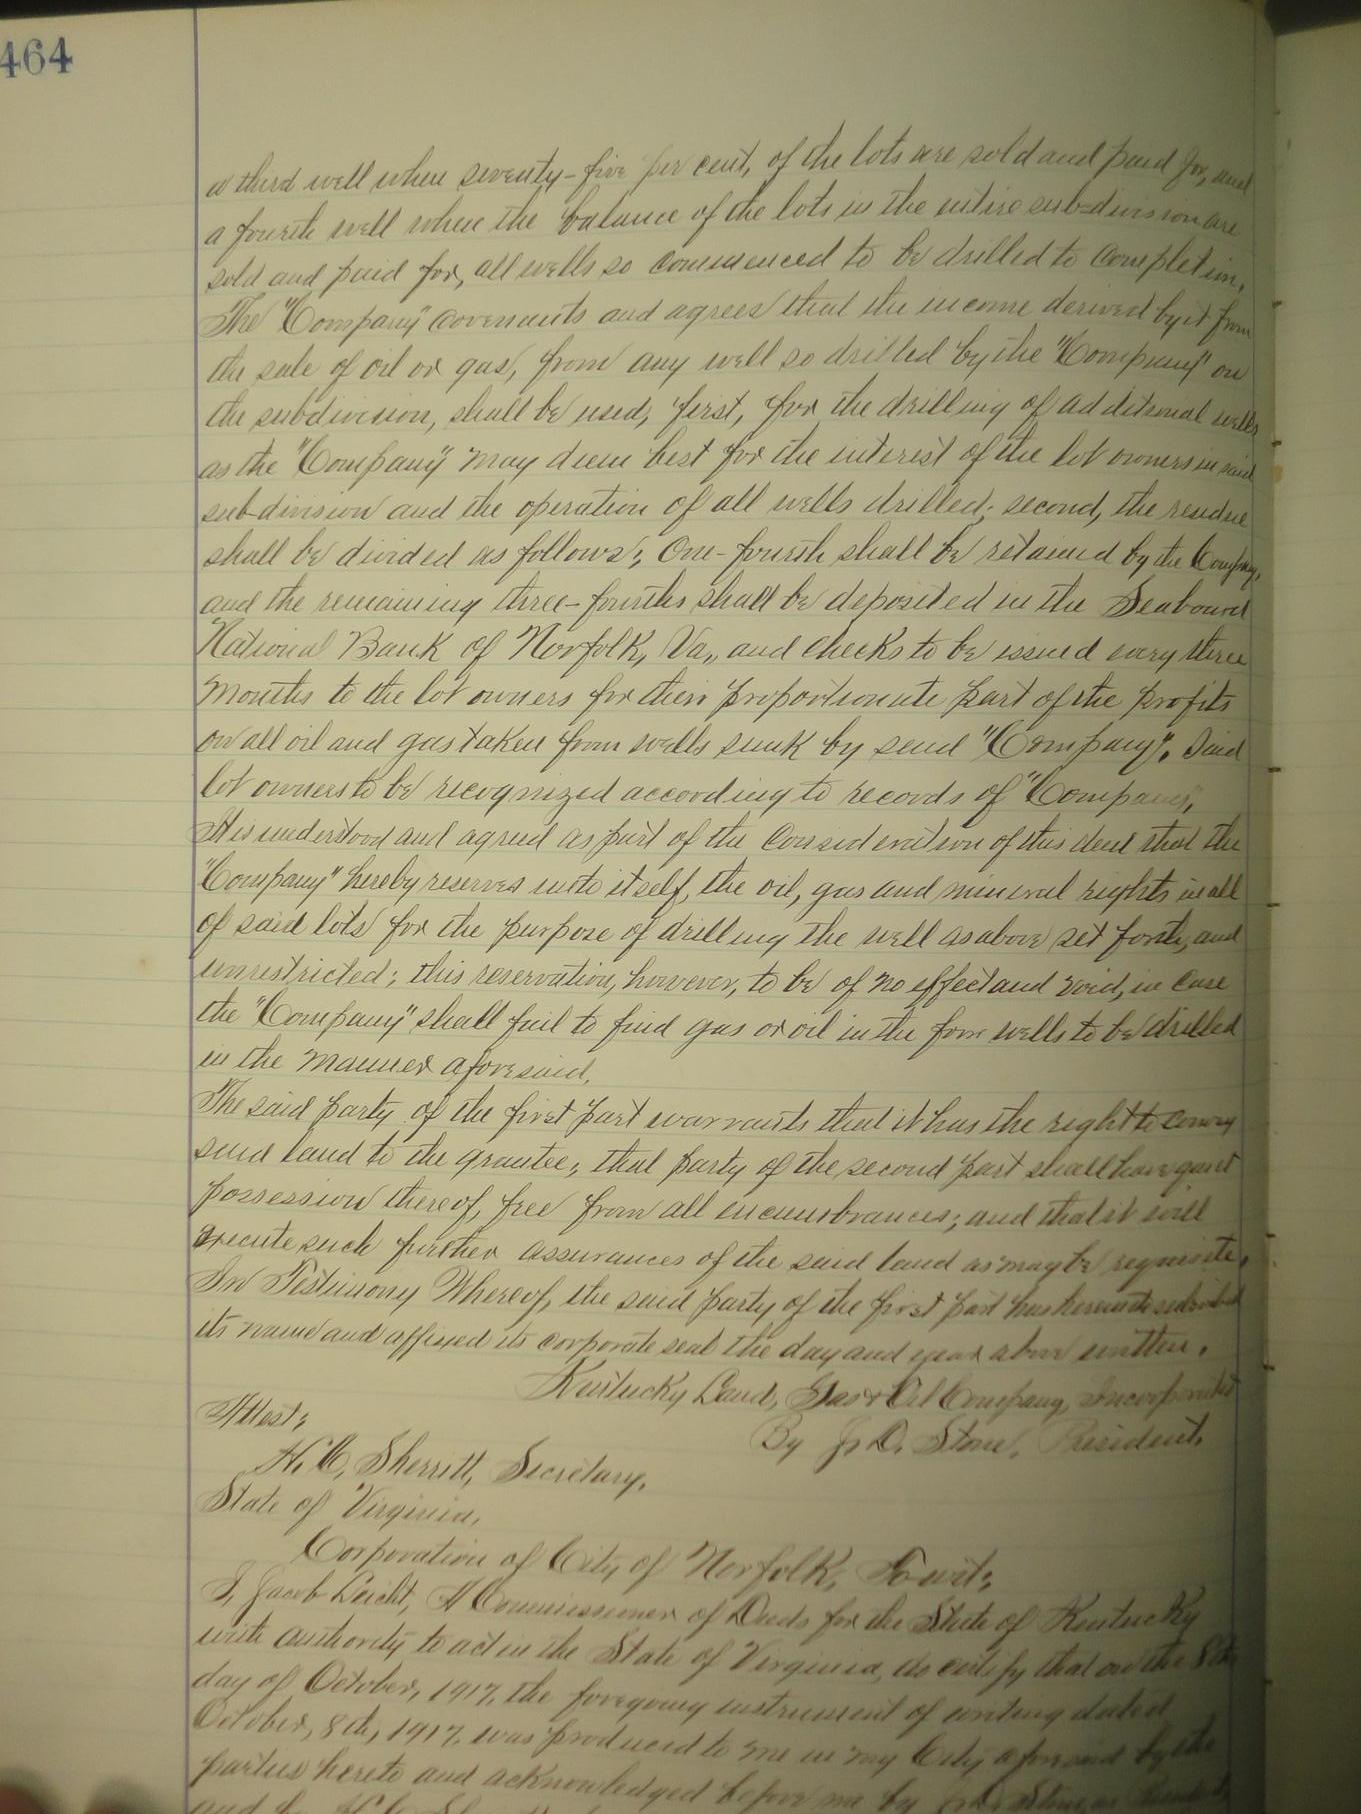 464
a third well when seventy-five per cent, of the lots are sold and paid for, and
a fourth well when the balance of the lots in the entire sub=division are
sold and paid for, all wells so commenced to be drilled to completion.
The "Company" covenants and agrees that the income derived by it from
the sale of oil or gas, from any well so drilled by the "Company" on
the subdivision, shall be used, first, for the drilling of additional wells
as the "Company" may deem best for the interest of the lot owners in said
sub-division and the operation of all wells drilled; second, the residue
shall be divided as follows; One-fourth shall be retained by the Company,
and the remaining three-fourths shall be deposited in the Seaboard
National Bank of Norfolk, Va., and checks to be issued every three
months to the lot owners for their proportionate part of the profits
on all oil and gas taken from wells sunk by said "Company". Said
lot owners to be recognized according to records of "Company",
It is understood and agreed as part of the consideration of this deed that the
"Company" hereby reserves unto itself, the oil, gas and mineral rights in all
of said lots for the purpose of drilling the well as above set forth, and
unrestricted; this reservation, however, to be of no effect and void, in case
the "Company" shall fail to find gas or oil in the four wells to be drilled
in the manner aforesaid.
The said party of the first part warrants that it has the right to convey
said land to the grantee; that party of the second part shall have quiet
possession thereof, free from all incumbrances; and that it will
execute such further assurances of the said land as may be requisite.
In Testimony Whereof, the said party of the first part has hereunto subscribed
its name and affixed its corporate seal the day and year above written.
Kentucky Land, Gas & Oil Company, Incorporated
Attest;
By J. D. Stone, President.
H. C. Sherritt, Secretary.
State of Virginia,
Corporation of City of Norfolk, To wit;
I, Jacob Leicht, A Commissioner of Deeds for the State of Kentucky
with authority to act in the State of Virginia, do certify that on the 8th
day of October, 1917, the foregoing instrument of writing dated
October, 8th, 1917, was produced to me in my City aforesaid by the
parties hereto and acknowledged before me by J. D. Stone, as President